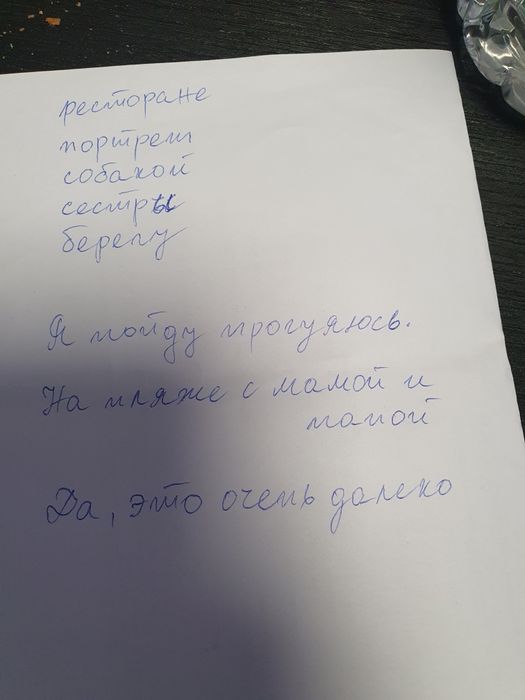 ресторане
портрет
собакой
сестры
берегу
Я пойду прогуяюсь.
На пляже с мамой и
папой
Да, это очень далеко